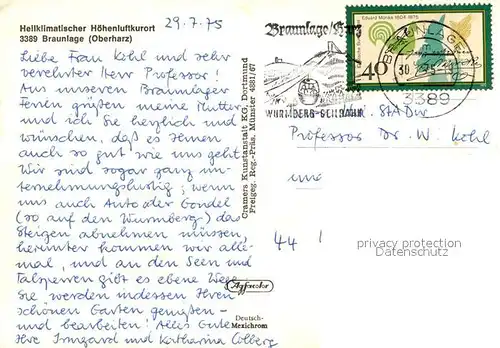 Heilklimatischer Höhenluftkurort
3389 Braunlage (Oberharz)
29.7.75
Liebe Frau Kohl und sehr
verehrter Herr Professor!
Aus unseren Braunlager
Ferien grüßen meine Mutter
und ich Sie herzlich und
wünschen, daß es Ihnen
auch so gut wie uns geht.
Wir sind sogar ganz un-
ternehmungslustig; wenn
uns auch Auto oder Gondel
(so auf den Wurmberg) das
Steigen abnehmen müssen,
herunter kommen wir alle-
mal, und an den Seen und
Talsperren gibt es ebene Wege.
Sie werden indessen Ihren
schönen Garten genießen –
und bearbeiten! Alles Gute
Ihre Irmgard und Katharina Colberg
Cramers Kunstanstalt KG, Dortmund
Freigeg. Reg.-Präs. Münster 4881/67
Agfacolor
Deutsch-
Mexichrom
Braunlage/Harz
WURMBERG-SEILBAHN
Eduard Mörike 1804-1875
40
BRAUNLAGE
3389
Professor Dr. W. Kohl
und
44
privacy protection
oldthing.de